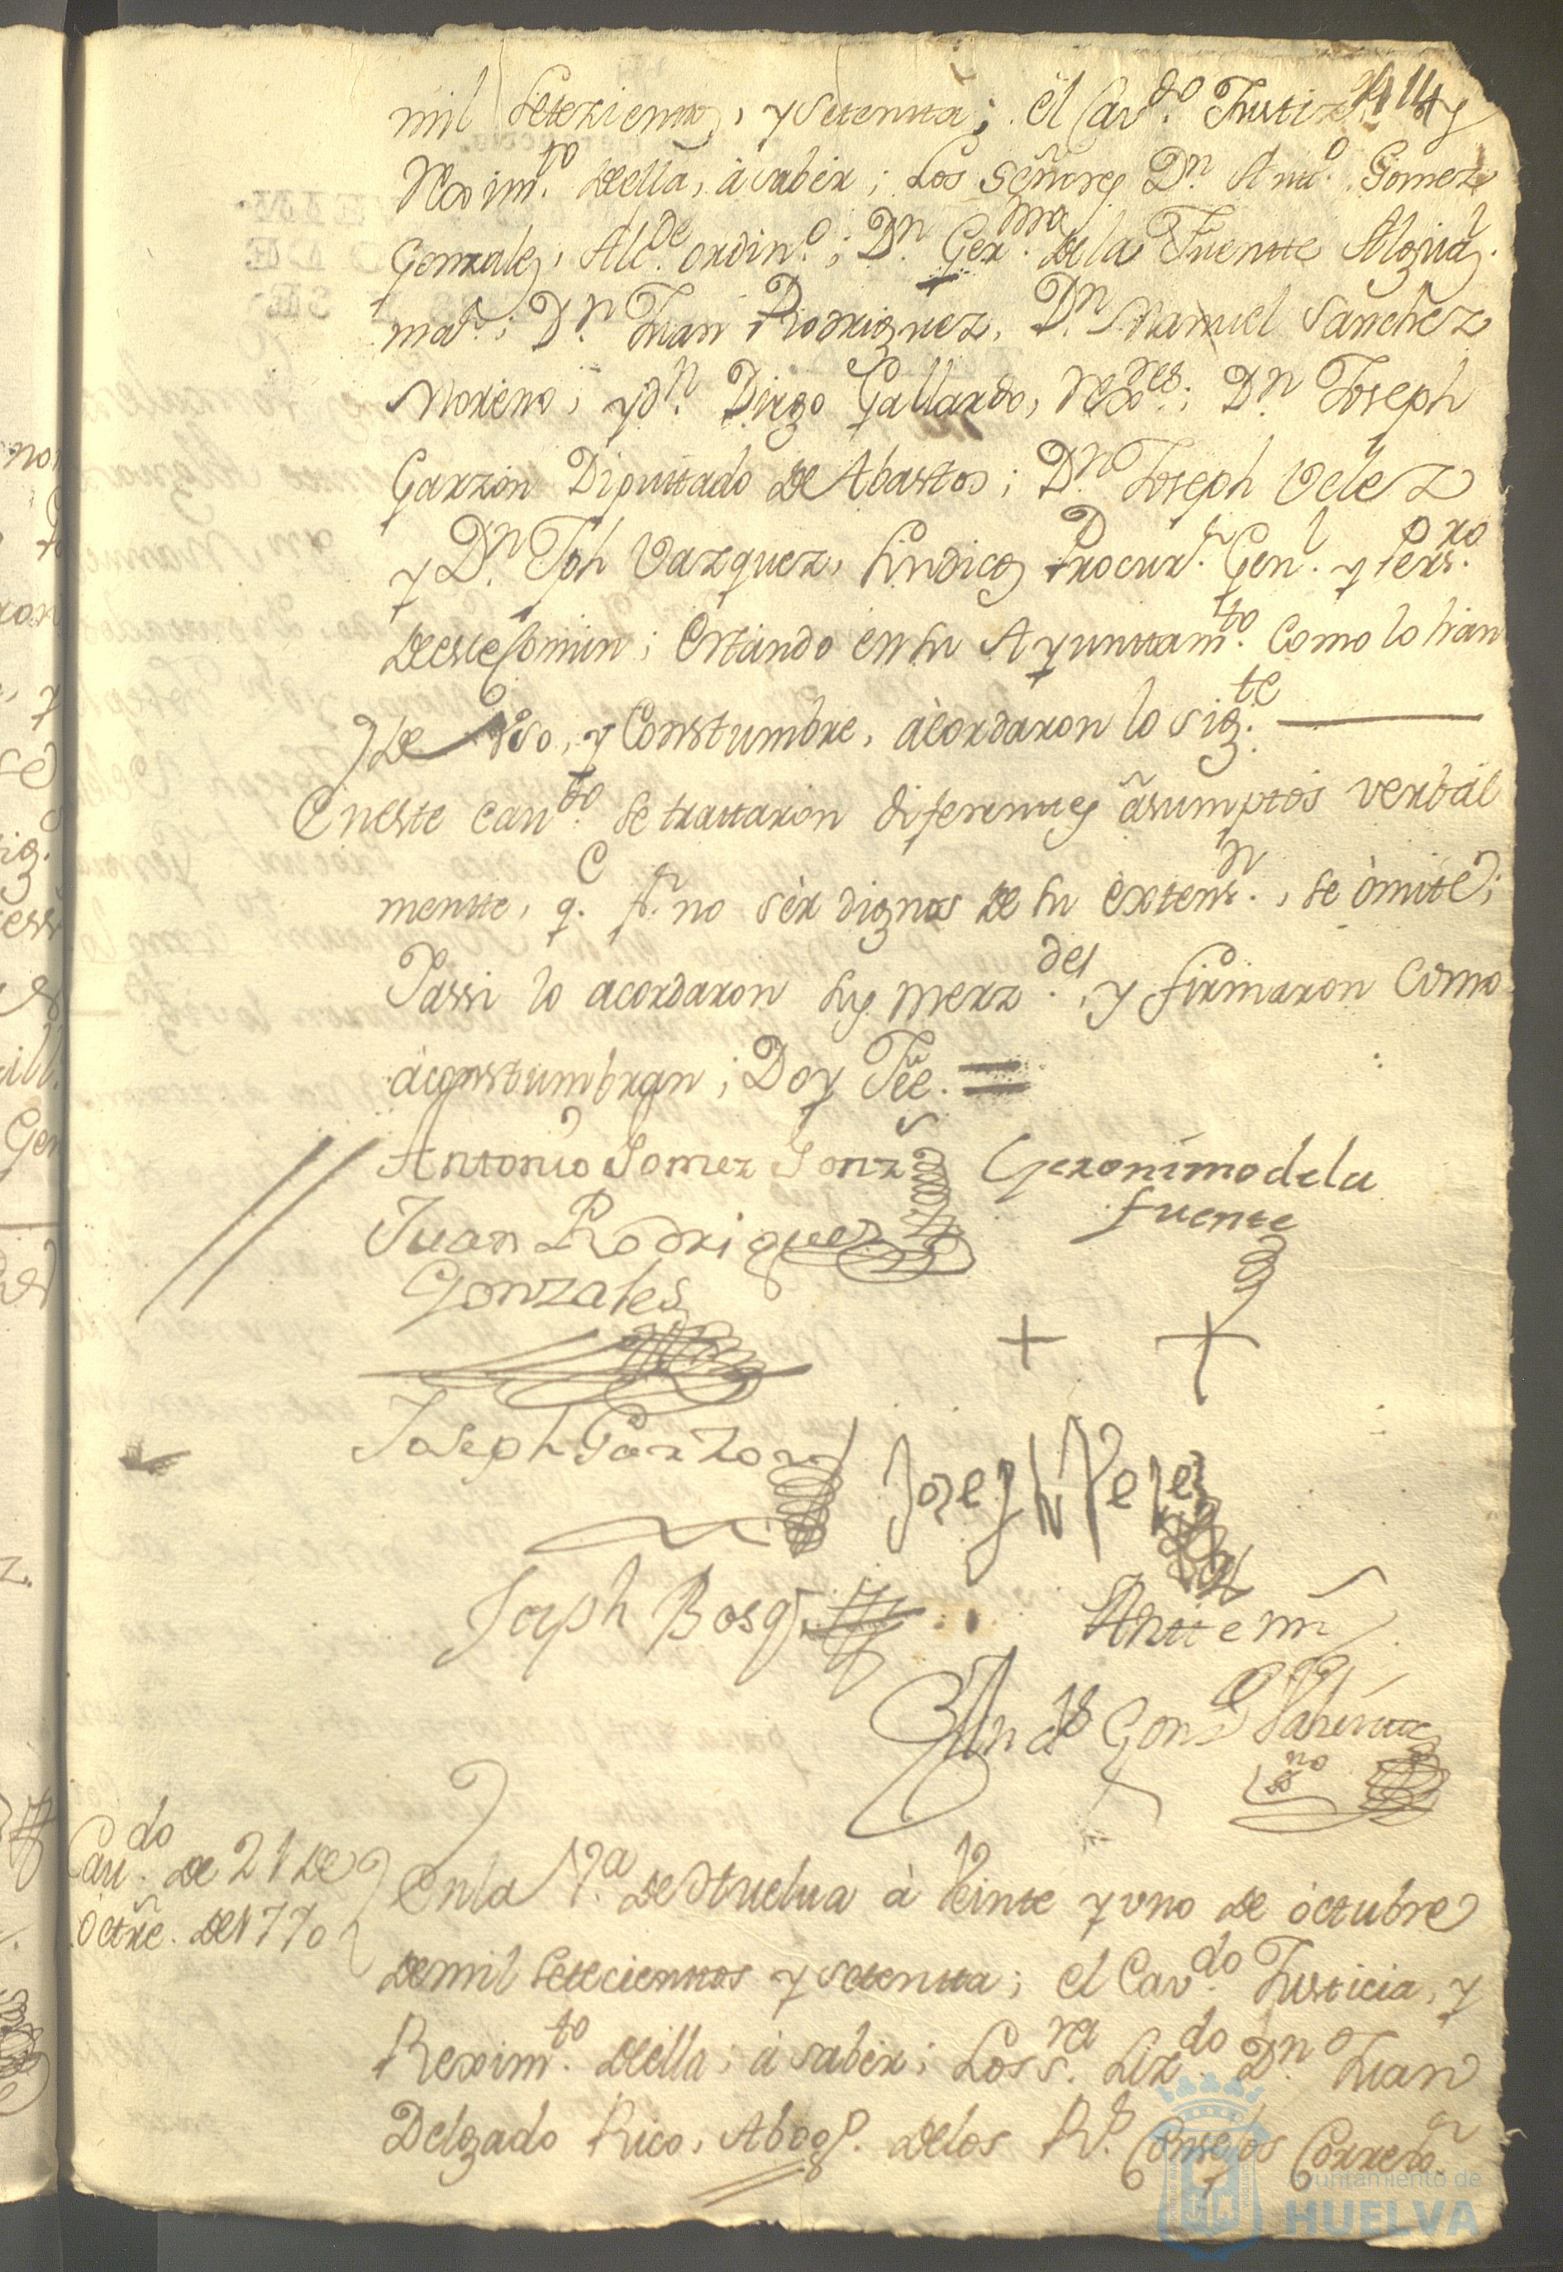 mil setezientos, y setentta; el Cav.do Justizia y
Rexim.to deella, à saber; Los Señores Dn. Antt.o Gomez
Gonzalez, Alc.de ordin.o; Dn. Ger.mo de la Fuentte Alguaz.l
ma.r; Dn. Juan Rodriguez, Dn. Manuel Sanchez
Moreno; y dn. Diego Gallardo, Rex.res; Dn. Joseph
Garzon Diputtado de Abastos; Dn. Joseph Velez
y Dn. Jph Vazquez, Sindicos Procur.r Gen.l y Pers.ro
deeste Comun; Estando en su Ayunttam.to Como lo han
de Vso, y Constumbre, àcordaron lo sig.te
En este cau.do se trattaron diferenttes àsumptos verbàl
mentte, q.e p.r no sèr dignos de su èxtens.n, se òmite;
Yassi lo acordaron sus merz.des, y firmaron Como
àconstumbran; Doy Fèe. =
Antonio Gomez Gonz.s Geronimo de la
fuente
Juan Rodriguez
Gonzales
+ +
Joseph Garzon Joseph Velez
Joseph Bosq
Antte mi
And.s Gonz
no
Cau.do de 21 de
Octre. de 1770
En la V.a de Huelua à Veinte y vno de òctubre
de mil setecienttos y setentta; el Cav.do Justicia, y
Rexim.to deella; à saber; Los S.res Liz.do Dn. Juan
Delgado Rico, Abog.o delos R.s Consejos Correxor
Ayuntamiento de
HUELVA